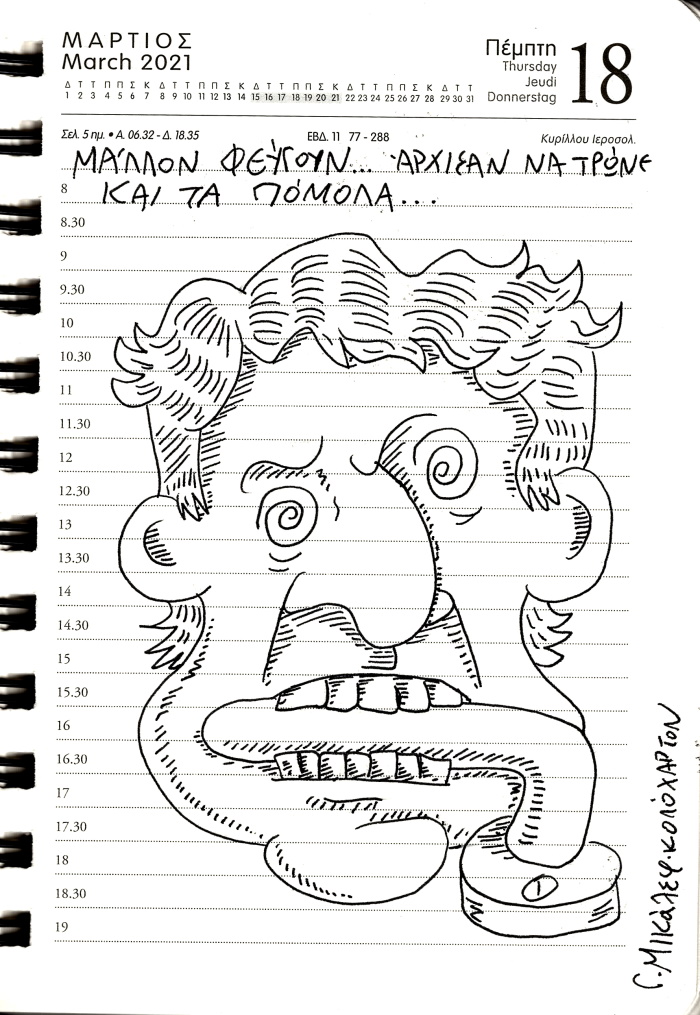 ΜΑΡΤΙΟΣ
March 2021
Πέμπτη
Thursday
Jeudi
Donnerstag
18
Δ Τ Τ Π Π Σ Κ Δ Τ Τ Π Π Σ Κ Δ Τ Τ Π Π Σ Κ Δ Τ Τ Π Π Σ Κ Δ Τ Τ
1 2 3 4 5 6 7 8 9 10 11 12 13 14 15 16 17 18 19 20 21 22 23 24 25 26 27 28 29 30 31
Σελ. 5 ημ. • Α. 06.32 - Δ. 18.35
ΕΒΔ. 11 77 - 288
Κυρίλλου Ιεροσολ.
ΜΆΛΛΟΝ ΦΕΎΓΟΥΝ... ΆΡΧΙΣΑΝ ΝΑ ΤΡΏΝΕ
8
ΚΑΙ ΤΑ ΠΌΜΟΛΑ...
8.30
9
9.30
10
10.30
11
11.30
12
12.30
13
13.30
14
14.30
15
15.30
16
16.30
17
17.30
18
18.30
19
Γ. ΜΙΚΆΛΕΦ·ΚΟΛΌΧΑΡΤΟΝ